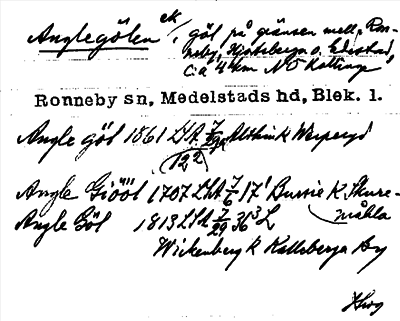 Anglegölen ek/, göl på gränsen mell. Ron-
neby, Hjortsberga o. Edestad,
c:a 4 km NO Kallinge
Ronneby sn, Medelstads hd, Blek. l.
Angle göl 1861 LSA
Angle Giööl 1707 LSA 7/6 17' K Skure-
måhla
Angle Göl 1813 LSA 7/29 36³ L
Wickenberg K Kalleberga by